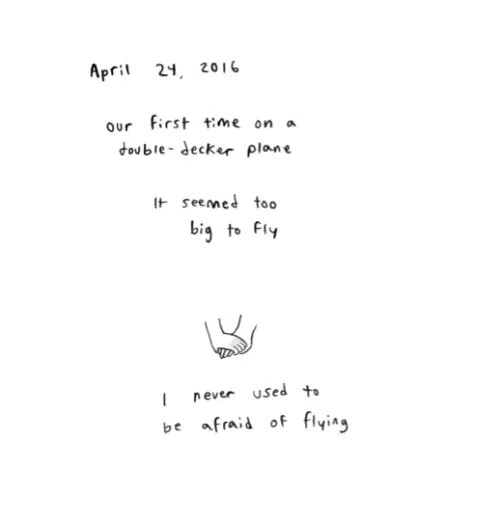 April 24, 2016
our first time on a
double-decker plane
It seemed too
big to fly
I never used to
be afraid of flying